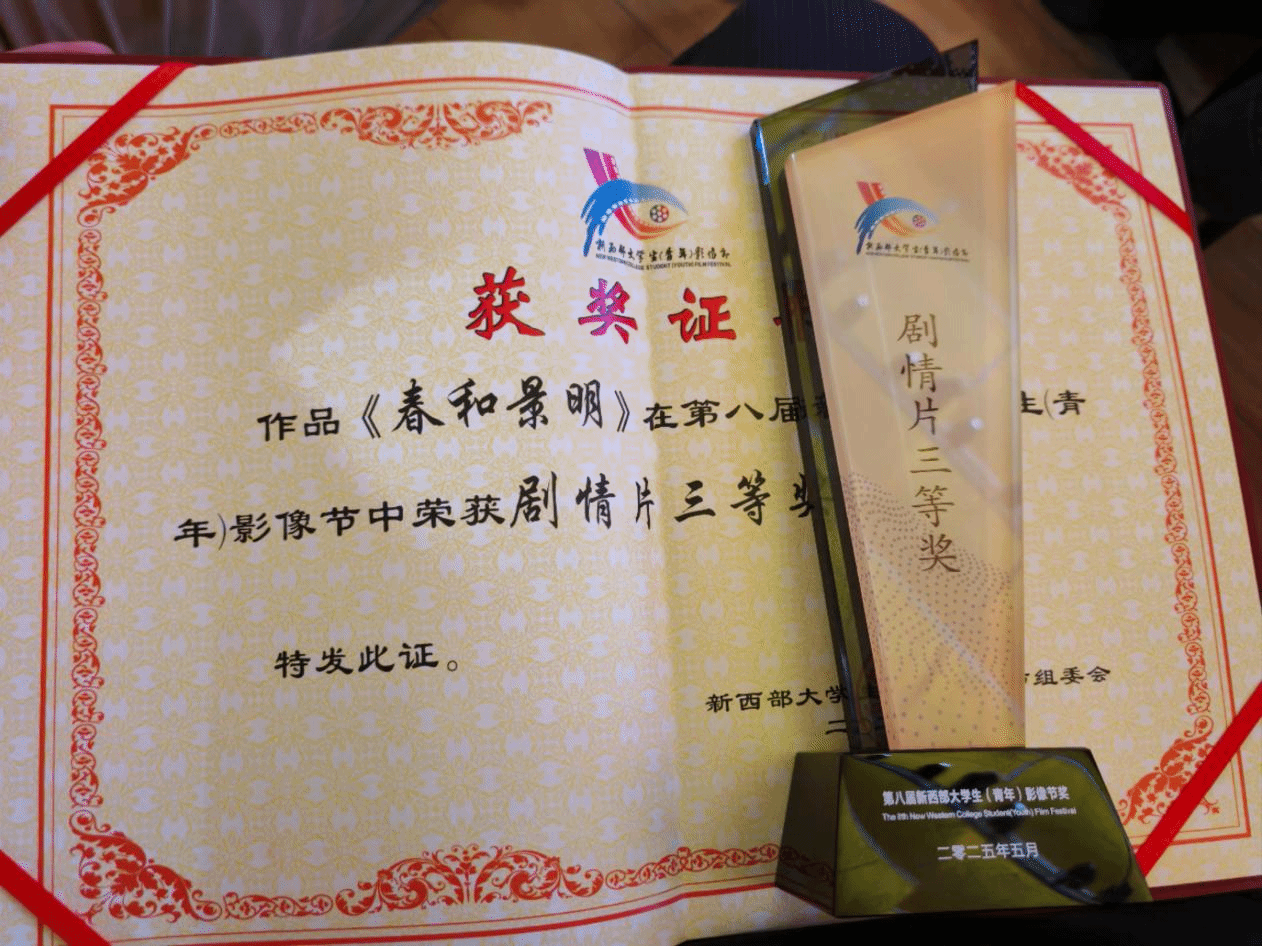 新西部大学生(青年)影像节
NEW WESTERN COLLEGE STUDENT (YOUTH) FILM FESTIVAL
获奖证
作品《春和景明》在第八届 生(青
年)影像节中荣获剧情片三等奖
特发此证。
新西部大学 组委会
二〇
新西部大学生(青年)影像节
剧情片三等奖
第八届新西部大学生（青年）影像节奖
The 8th New Western College Student(Youth) Film Festival
二零二五年五月